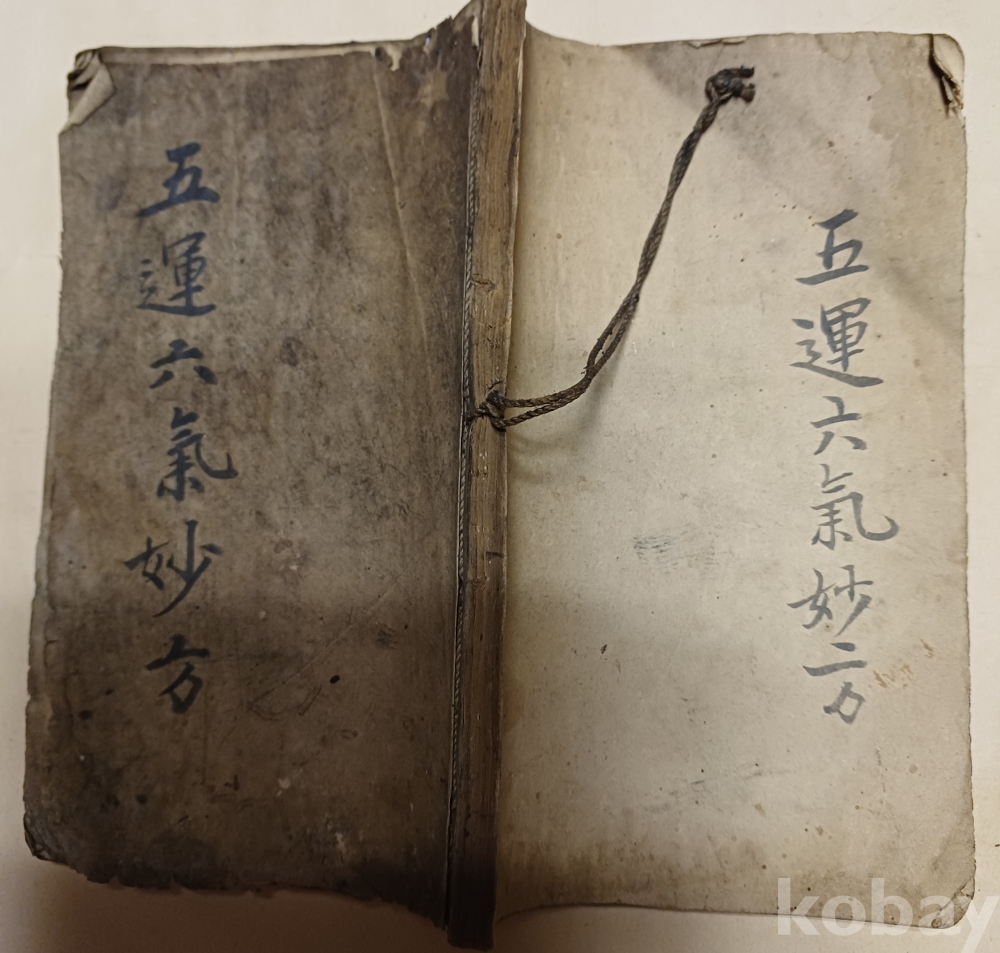 五運六氣妙方
五運六氣妙方
kobay